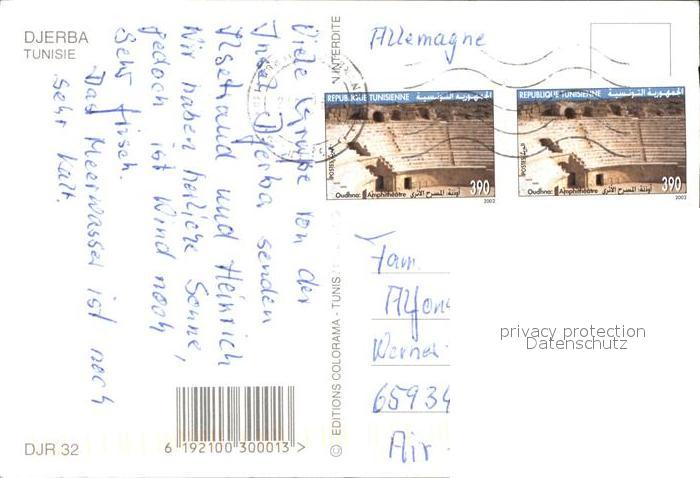 DJERBA
TUNISIE
Viele Grüße von der
Insel Djerba senden
Ilsetraud und Heinrich
Wir haben herrliche Sonne,
jedoch ist Wind noch
sehr frisch.
Das Meerwasser ist noch
sehr kalt
DJR 32
6 192100 300013 >
© EDITIONS COLORAMA - TUNIS
N INTERDITE
Allemagne
REPUBLIQUE TUNISIENNE الجمهورية التونسية
Oudhna: Amphithéâtre أوذنة: المسرح الأثري
390
2002
REPUBLIQUE TUNISIENNE الجمهورية التونسية
Oudhna: Amphithéâtre أوذنة: المسرح الأثري
390
2002
Fam.
Alfons
Werner
65934
Air
privacy protection
Datenschutz